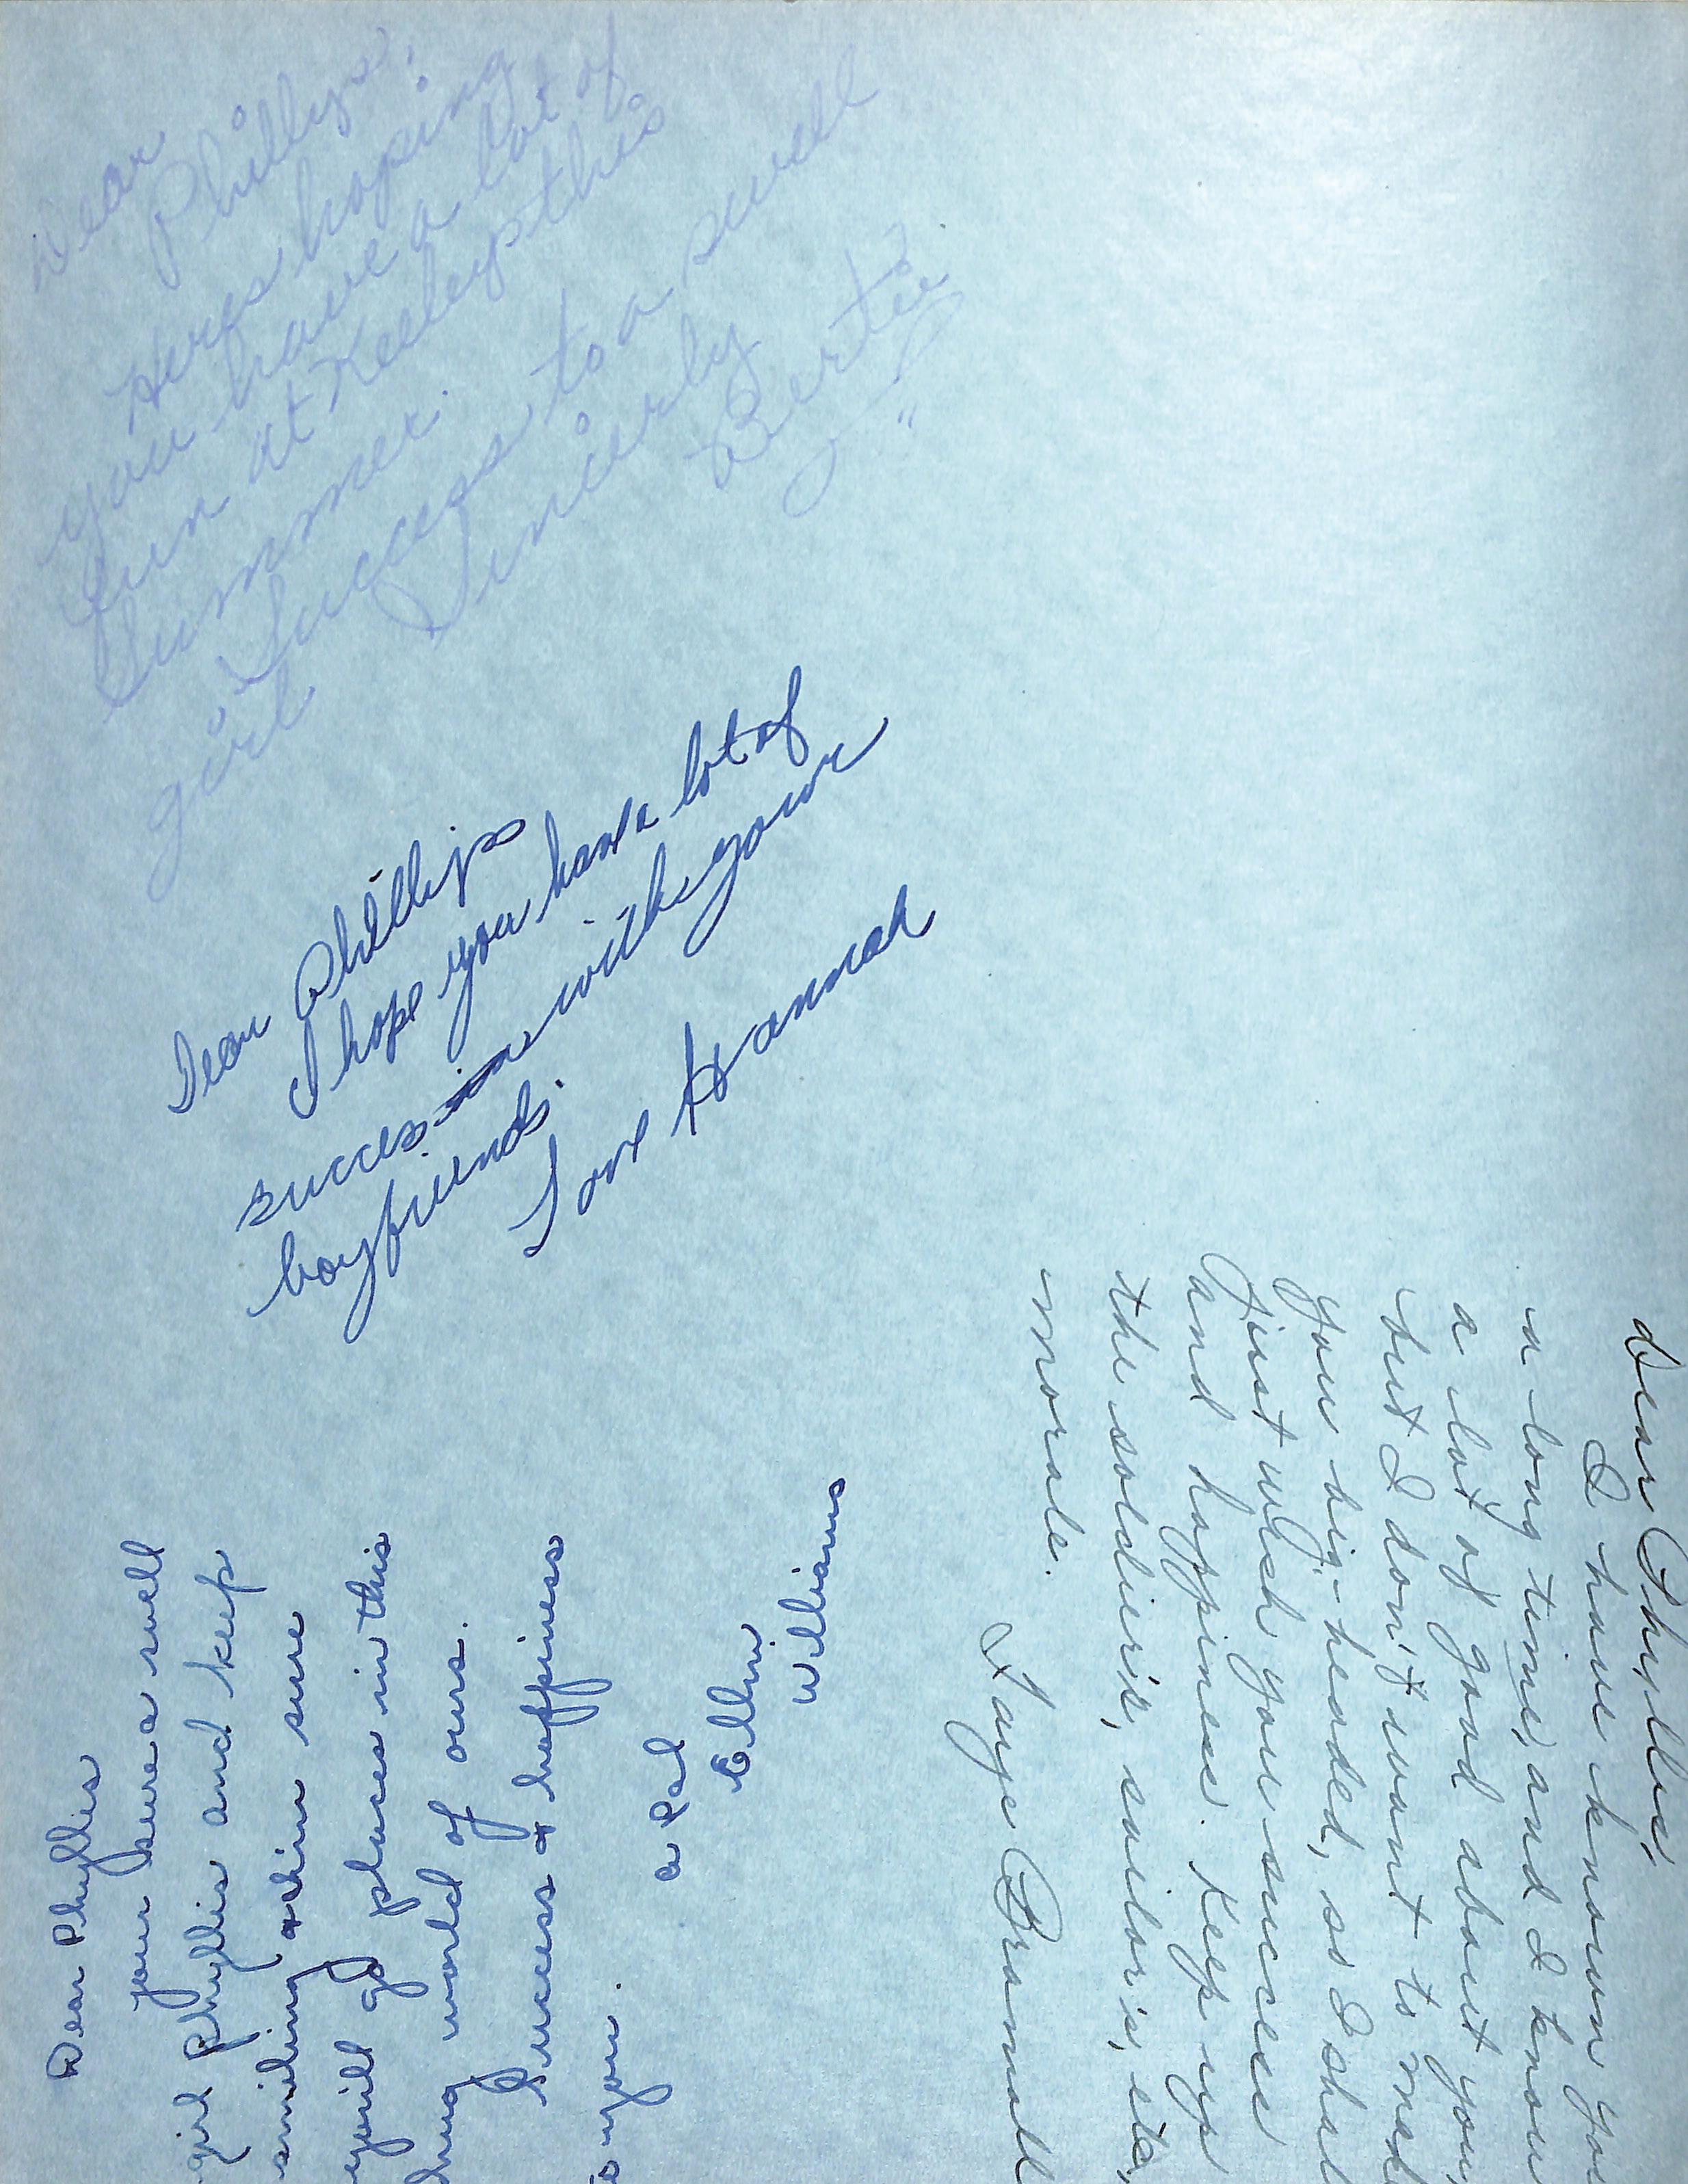 Dear
Phillys,
Heres hoping
you have a lot of
fun at Keeleys this
Summer.
Success to a swell
girl
Sincerly
Bertie
Dear Phillips
I hope you have a lot of
success with your
boyfriends.
Love Hannah
Dear Phyllis
your sure a swell
girl Phyllis and keep
smiling
youll go places in this
world of ours.
Success & happiness
you.
a Pal
Ellen
Williams
Dear Phyllis,
I have known you
a long time, and I know
a lot of good about you,
but I don't want to make
you big-headed, so I shall
just wish you success
and happiness. Keep up
the soldier's, sailor's, etc,
morale.
Faye Bramall